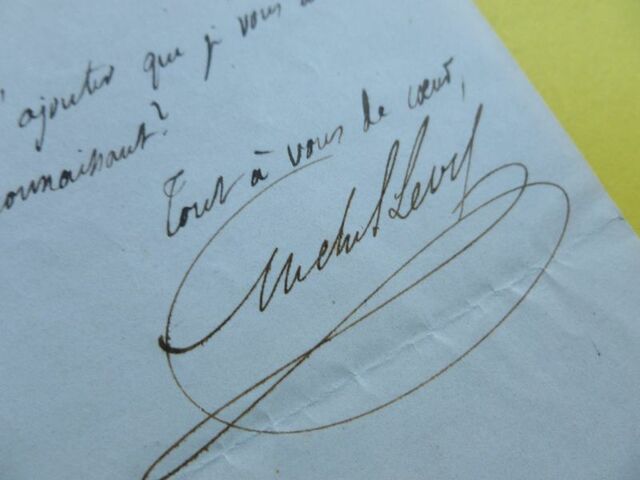 ajouter que je vous
connaissant?
Tout à vous de cœur,
Michel Levy